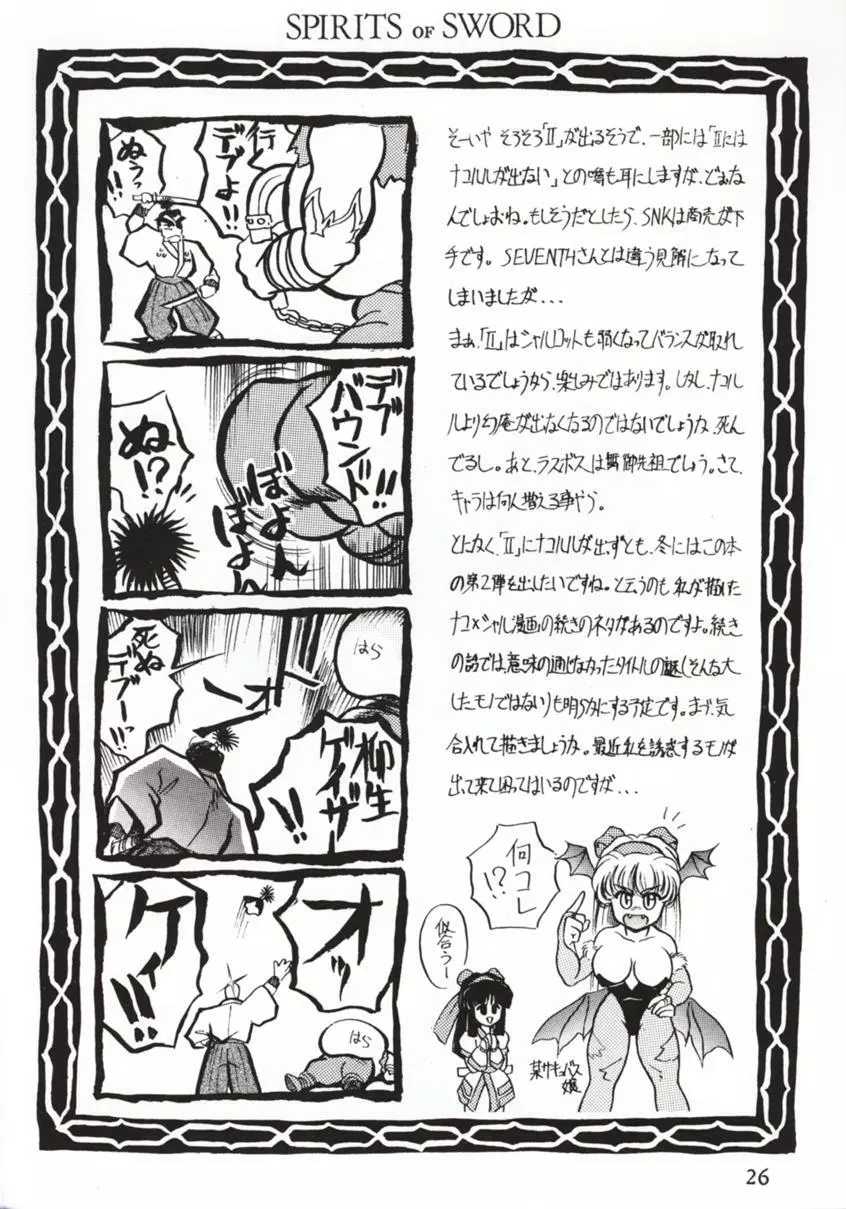 SPIRITS OF SWORD
行くデブよ
ぬうっ!!
デブバウンド!!
ぼよんぼよん
ぬ!?
はら
柳生ゲイザー!!
ニオー
死ぬデブー…!?
オッ
ケイ!!
はら
そーいや そろそろ「Ⅱ」が出るそうで、一部には「Ⅱには
ナコルルが出ない」との噂も耳にしますが、どぉな
んでしょおね。もしそうだとしたら、SNKは商売が下
手です。SEVENTHさんとは違う見解になって
しまいましたが...
まぁ、「Ⅱ」はシャルロットも弱くなってバランスが取れ
ているでしょうから、楽しみではあります。しかし、ナコル
ルより幻庵が出なくなるのではないでしょうか、死ん
でるし。あと、ラスボスは舞御先祖でしょう。さて、
キャラは何人増える事やら。
とにかく、「Ⅱ」にナコルルが出ずとも、冬にはこの本
の第2弾を出したいですね。と云うのも 私が描いた
ナコ×シャル漫画の続きのネタがあるのですよ。続き
の話では、意味の通じなかったタイトルの謎(そんな大
したモノではない)も明らかにする予定です。まぁ、気
合入れて描きましょうか。最近私を誘惑するモノが
出て来て困ってはいるのですが...
何コレ!?
似合うー
某サキュバス嬢
26